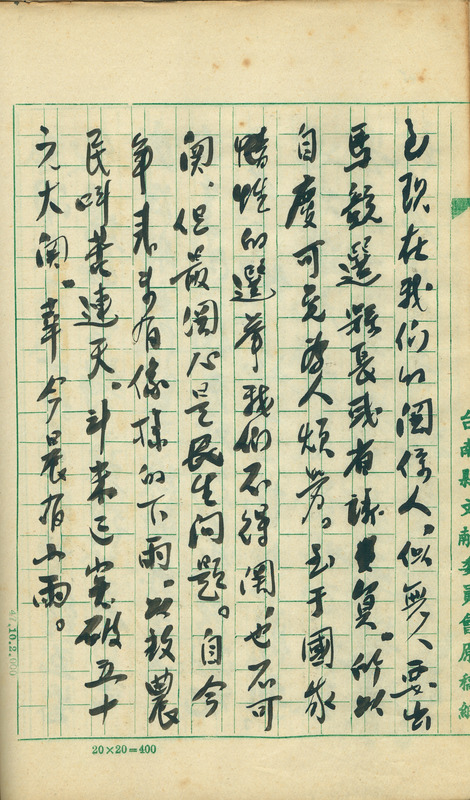 至現在我们的関係人，似無人要出
馬競選縣長或省議員。所以
自慶可免為人煩労。至于國家
性的選举我们不得関，也不可
関，但最関心是民生问題。自今
年来未有係樣的下雨，以致農
民叫苦連天。斗米已突破五十
元大関。幸今晨有小雨。
台南縣文献委員會原稿紙
20×20=400
47.10.2.000